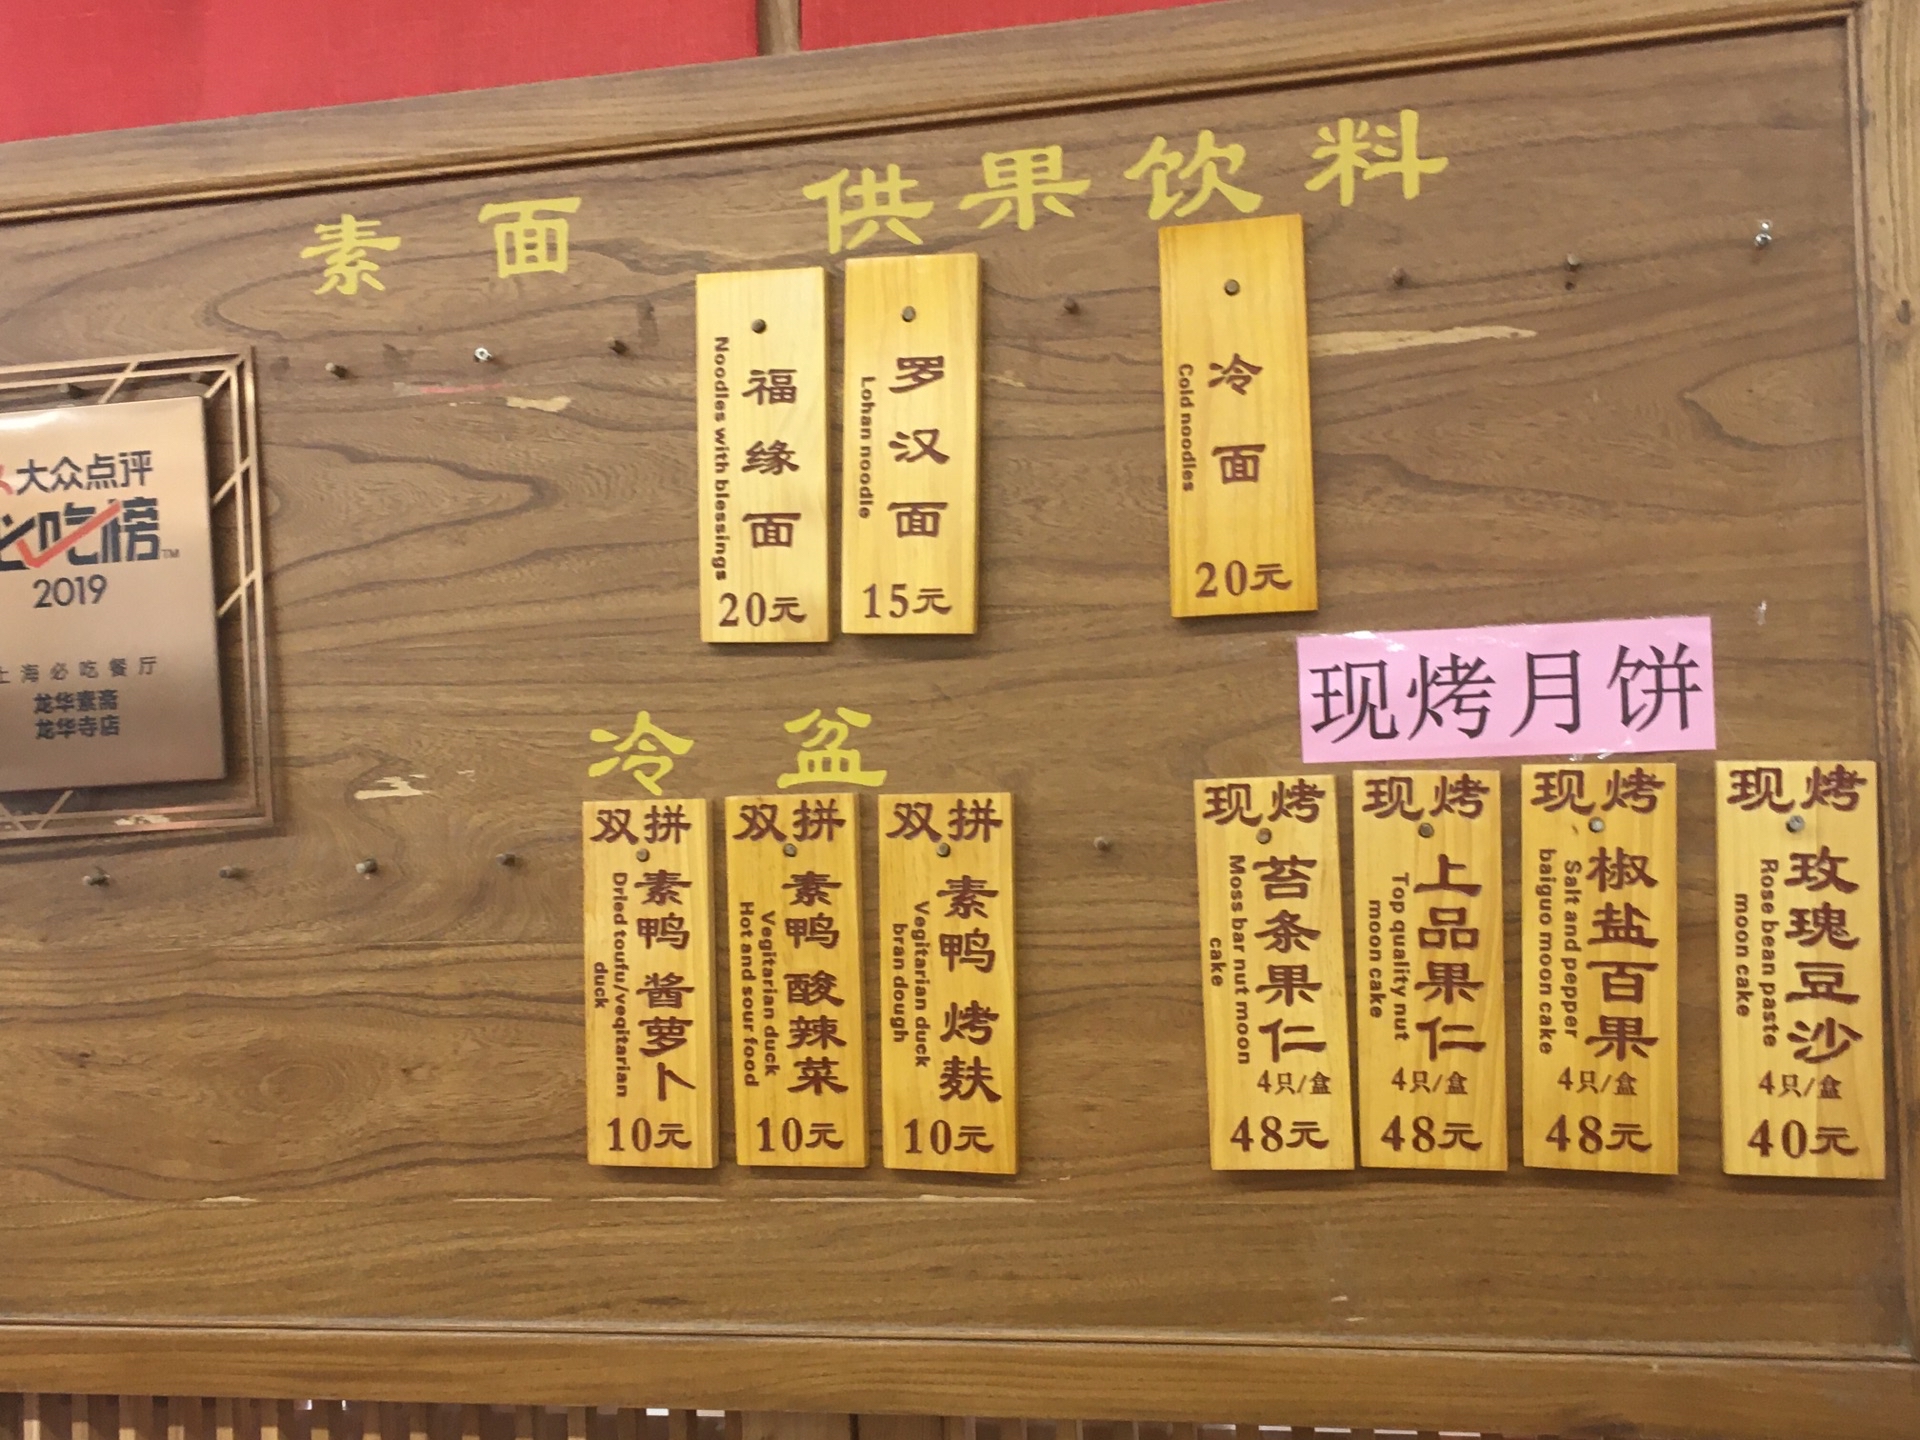 素面
供果饮料
福缘面
Noodles with blessings
20元
罗汉面
Lohan noodle
15元
冷面
Cold noodles
20元
大众点评
必吃榜™
2019
上海必吃餐厅
龙华素斋
龙华寺店
冷盆
双拼
素鸭 酱萝卜
Dried toufu/veqitarian
duck
10元
双拼
素鸭 酸辣菜
Vegitarian duck
Hot and sour food
10元
双拼
素鸭 烤麸
Vegitarian duck
bran dough
10元
现烤月饼
现烤
苔条果仁
Moss bar nut moon
cake
4只/盒
48元
现烤
上品果仁
Top quality nut
moon cake
4只/盒
48元
现烤
椒盐百果
Salt and pepper
baiguo moon cake
4只/盒
48元
现烤
玫瑰豆沙
Rose bean paste
moon cake
4只/盒
40元